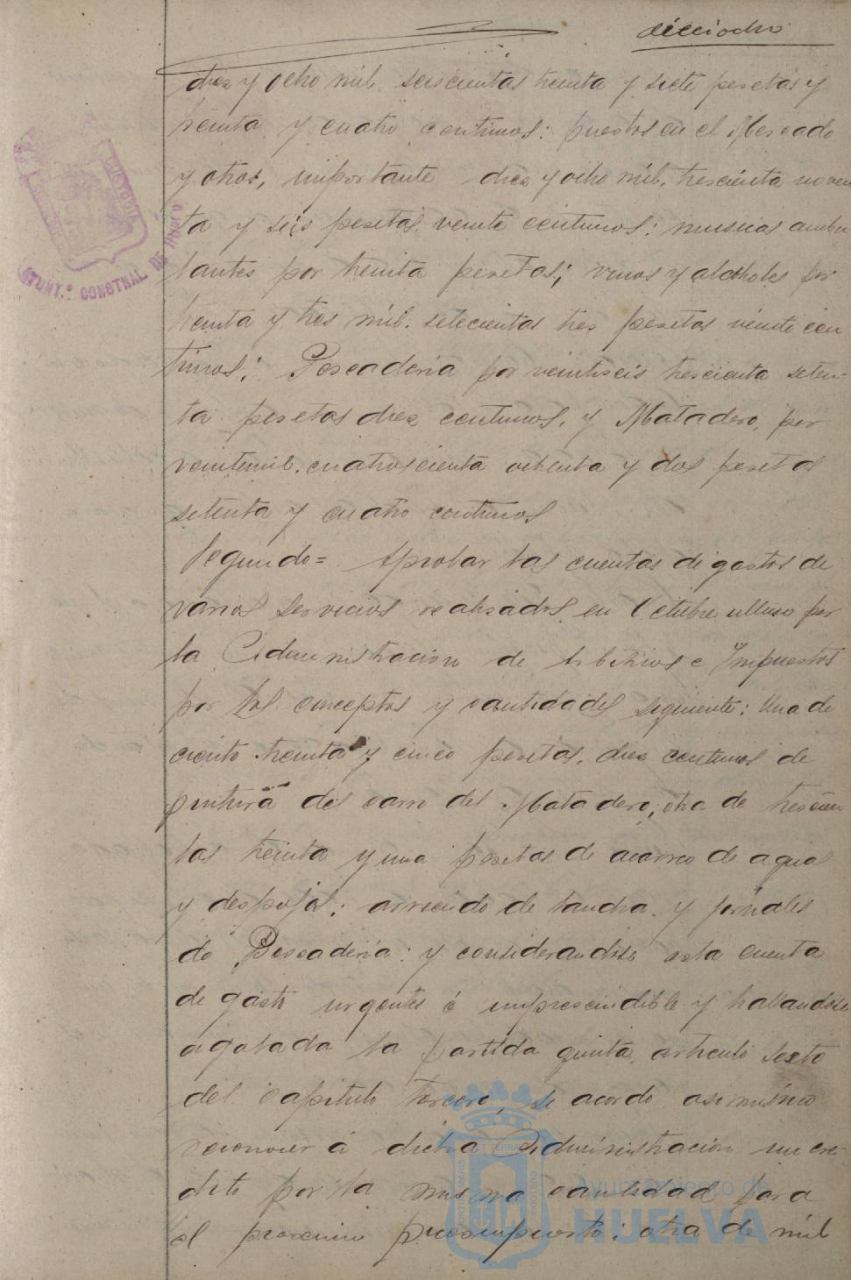 dieciocho
diez y ocho mil seiscientas treinta y siete pesetas y
treinta y cuatro centimos: puestos en el Mercado
y otros, importante diez y ocho mil, trescienta noven
ta y seis pesetas veinte centimos: musicas ambu
lantes por treinta pesetas; vinos y alcoholes por
treinta y tres mil. setecientas tres pesetas veinte cen
timos; Pescaderia por veintiseis trescienta seten-
ta pesetas diez centimos, y Matadero, por
veintemil. cuatroscienta ochenta y dos pesetas
setenta y cuatro centimos
Segundo = Aprobar las cuentas de gastos de
varios servicios realizados en Octubre ultimo por
la Administracion de Arbitrios e Impuestos
por los conceptos y cantidades siguiente: Una de
ciento treinta y cinco pesetas, diez centimos de
pintura del carro del Matadero; otra de trescien
tas treinta y una pesetas de acarreo de aguas
y despojos; arriendo de lancha y jornales
de Pescaderia: y considerandose esta cuenta
de gasto urgentes é imprescindible y hallandose
agotada la partida quinta, articulo sexto
del capitulo tercero, se acordo asimismo
reconocer á dicha Administracion un cre-
dito por la misma cantidad para
el proximo presupuesto; otra de mil
AYUNT.º CONSTNAL DE HUELVA
Ayuntamiento de
HUELVA